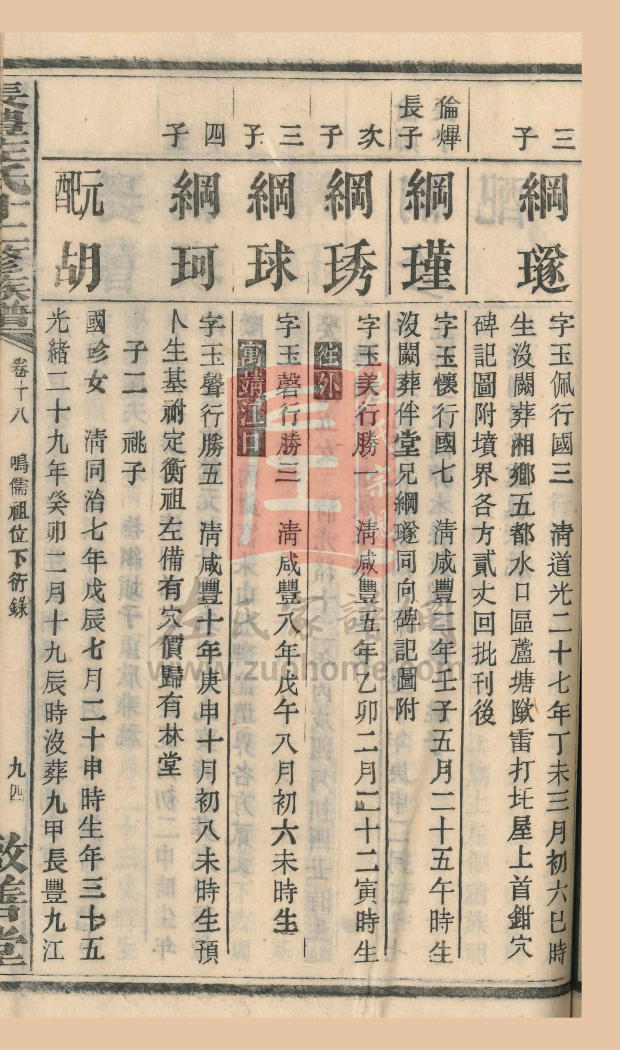 三子
綱璲
字玉佩行國三　清道光二十七年丁未三月初六巳時
生沒闕葬湘鄉五都水口區蘆塘㘭雷打圫屋上首鉗穴
碑記圖附墳界各方貳丈回批刊後
倫㷸長子
綱瑾
字玉懷行國七　清咸豐二年壬子五月二十五午時生
沒闕葬伴堂兄綱璲同向碑記圖附
次子
綱琇
字玉美行勝一　清咸豐五年乙卯二月二十二寅時生
往外
三子
綱球
字玉磬行勝三　清咸豐八年戊午八月初六未時生
寓靖江口
四子
綱珂
字玉聲行勝五　清咸豐十年庚申十月初八未時生預
卜生基祔定衡祖左備有穴價歸有林堂
子二　祧子
元配胡
國珍女　清同治七年戊辰七月二十申時生年三十五
光緒二十九年癸卯二月十九辰時沒葬九甲長豐九江
長豐王氏十二修族譜
卷十八　鳴儒祖位下衍錄
九四
敦善堂
www.zuqhome.com